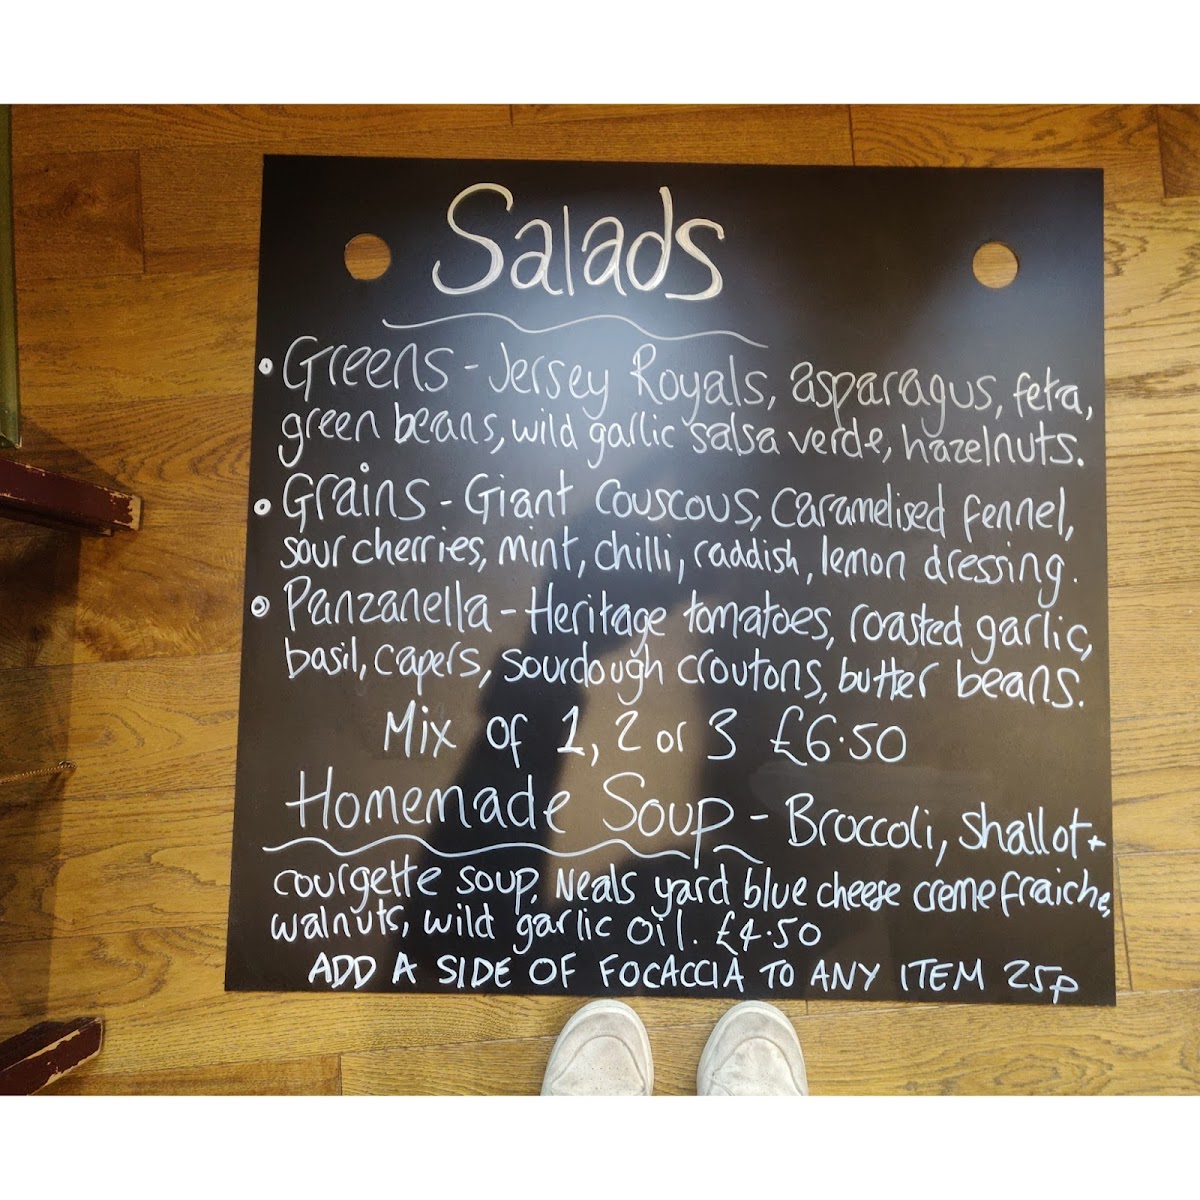 Salads
• Greens - Jersey Royals, asparagus, feta,
green beans, wild garlic salsa verde, hazelnuts.
• Grains - Giant couscous, caramelised fennel,
sour cherries, mint, chilli, raddish, lemon dressing.
• Panzanella - Heritage tomatoes, roasted garlic,
basil, capers, sourdough croutons, butter beans.
Mix of 1, 2 or 3 £6.50
Homemade Soup - Broccoli, shallot +
courgette soup, Neals yard blue cheese creme fraiche,
walnuts, wild garlic oil. £4.50
ADD A SIDE OF FOCACCIA TO ANY ITEM 25p